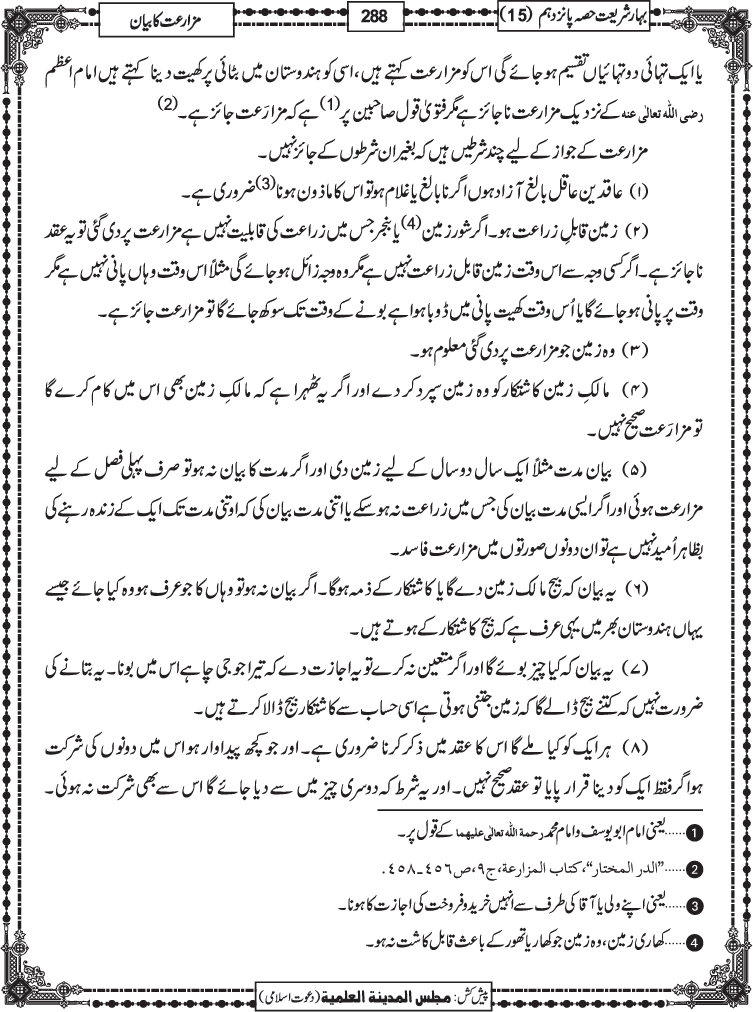 بہارِ شریعت حصہ پانزدہم (15)
288
مزارعت کا بیان
یا ایک تہائی دو تہائیاں تقسیم ہو جائے گی اس کو مزارعت کہتے ہیں، اسی کو ہندوستان میں بٹائی پر کھیت دینا کہتے ہیں امام اعظم
رضی اللہ تعالٰی عنہ کے نزدیک مزارعت ناجائز ہے مگر فتویٰ قول صاحبین پر (1) ہے کہ مزارَعت جائز ہے۔ (2)
مزارعت کے جواز کے لیے چند شرطیں ہیں کہ بغیر ان شرطوں کے جائز نہیں۔
(۱) عاقدین عاقل بالغ آزاد ہوں اگر نابالغ یا غلام ہو تو اس کا ماذون ہونا (3) ضروری ہے۔
(۲) زمین قابلِ زراعت ہو۔ اگر شور زمین (4) یا بنجر جس میں زراعت کی قابلیت نہیں ہے مزارعت پر دی گئی تو یہ عقد
ناجائز ہے۔ اگر کسی وجہ سے اس وقت زمین قابل زراعت نہیں ہے مگر وہ وجہ زائل ہو جائے گی مثلاً اس وقت وہاں پانی نہیں ہے مگر
وقت پر پانی ہو جائے گا یا اُس وقت کھیت پانی میں ڈوبا ہوا ہے بونے کے وقت تک سوکھ جائے گا تو مزارعت جائز ہے۔
(۳) وہ زمین جو مزارعت پر دی گئی معلوم ہو۔
(۴) مالکِ زمین کاشتکار کو وہ زمین سپرد کر دے اور اگر یہ ٹھہرا ہے کہ مالکِ زمین بھی اس میں کام کرے گا
تو مزارَعت صحیح نہیں۔
(۵) بیان مدت مثلاً ایک سال دو سال کے لیے زمین دی اور اگر مدت کا بیان نہ ہو تو صرف پہلی فصل کے لیے
مزارعت ہوئی اور اگر ایسی مدت بیان کی جس میں زراعت نہ ہو سکے یا اتنی مدت بیان کی کہ اوتنی مدت تک ایک کے زندہ رہنے کی
بظاہر اُمید نہیں ہے تو ان دونوں صورتوں میں مزارعت فاسد۔
(۶) یہ بیان کہ بیج مالک زمین دے گا یا کاشتکار کے ذمہ ہوگا۔ اگر بیان نہ ہو تو وہاں کا جو عرف ہو وہ کیا جائے جیسے
یہاں ہندوستان بھر میں یہی عرف ہے کہ بیج کاشتکار کے ہوتے ہیں۔
(۷) یہ بیان کہ کیا چیز بوئے گا اور اگر متعین نہ کرے تو یہ اجازت دے کہ تیرا جو جی چاہے اس میں بونا۔ یہ بتانے کی
ضرورت نہیں کہ کتنے بیج ڈالے گا کہ زمین جتنی ہوتی ہے اسی حساب سے کاشتکار بیج ڈالا کرتے ہیں۔
(۸) ہر ایک کو کیا ملے گا اس کا عقد میں ذکر کرنا ضروری ہے۔ اور جو کچھ پیداوار ہو اس میں دونوں کی شرکت
ہو اگر فقط ایک کو دینا قرار پایا تو عقد صحیح نہیں۔ اور یہ شرط کہ دوسری چیز میں سے دیا جائے گا اس سے بھی شرکت نہ ہوئی۔
1 ......یعنی امام ابو یوسف و امام محمد رحمة اللہ تعالٰی علیہما کے قول پر۔
2 ......”الدر المختار“، کتاب المزارعة، ج۹، ص۴۵۶۔۴۵۸.
3 ......یعنی اپنے ولی یا آقا کی طرف سے انہیں خرید و فروخت کی اجازت کا ہونا۔
4 ......کھاری زمین، وہ زمین جو کھار یا تھور کے باعث قابل کاشت نہ ہو۔
پیش کش: مجلس المدینة العلمیة (دعوت اسلامی)